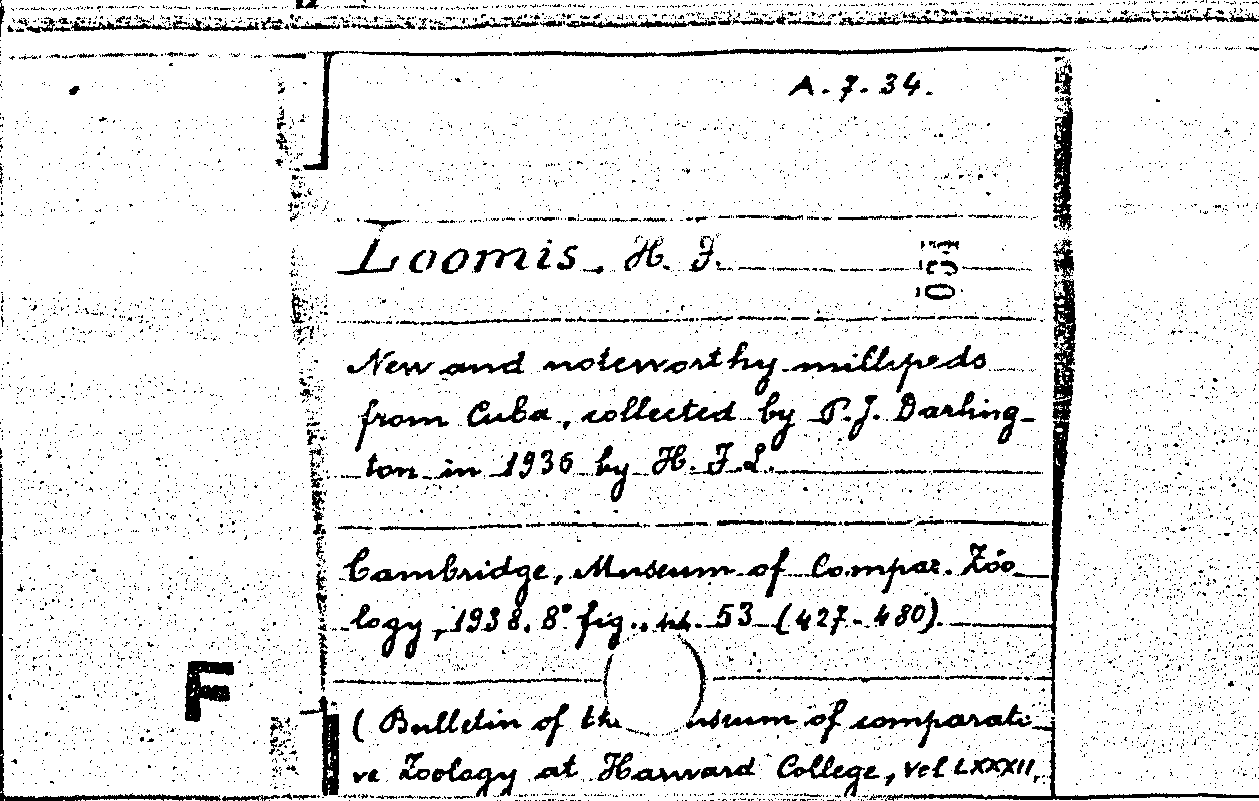 A.7.34.
Loomis, H. F.
New and noteworthy millipeds
from Cuba, collected by P.J. Darling-
ton in 1936 by H. F. L.
Cambridge, Museum of Compar. Zöo
logy, 1938. 8° fig., 53 (427-480).
F
(Bulletin of the seum of comparati
ve Zoology at Harvard College, vol LXXXII,